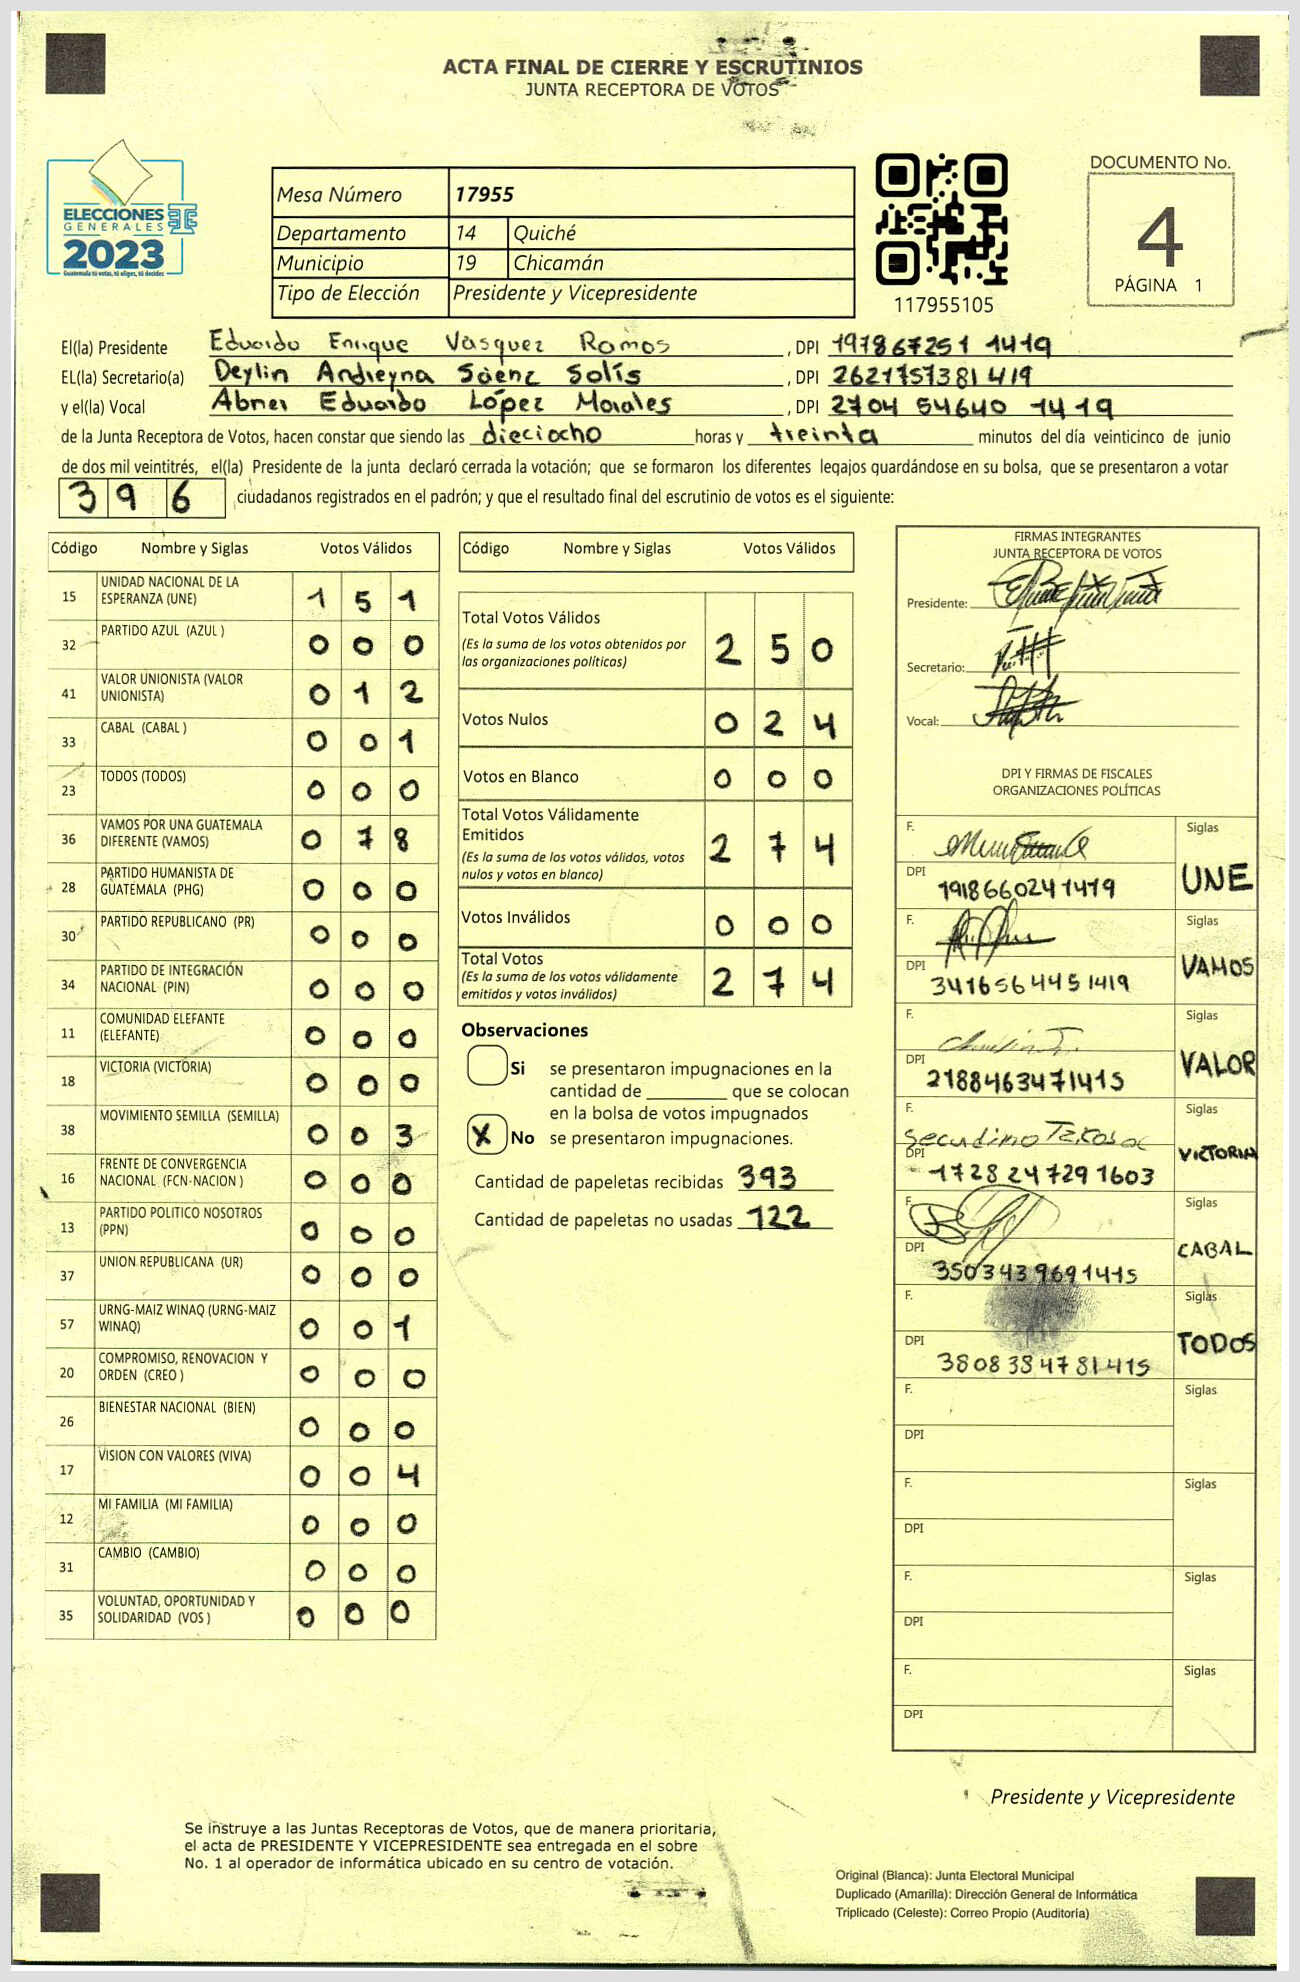 ACTA FINAL DE CIERRE Y ESCRUTINIOS
JUNTA RECEPTORA DE VOTOS
ELECCIONES
GENERALES
2023
Guatemala tú votas, tú eliges, tú decides
Mesa Número 17955
Departamento 14 Quiché
Municipio 19 Chicamán
Tipo de Elección Presidente y Vicepresidente
117955105
DOCUMENTO No.
4
PÁGINA 1
El(la) Presidente Eduardo Enrique Vasquez Ramos, DPI 197867251 1419
EL(la) Secretario(a) Deylin Andreyna Sáenz Solís, DPI 2621757381419
y el(la) Vocal Abner Eduardo López Morales, DPI 2704 54640 1419
de la Junta Receptora de Votos, hacen constar que siendo las dieciocho horas y treinta minutos del día veinticinco de junio
de dos mil veintitrés, el(la) Presidente de la junta declaró cerrada la votación; que se formaron los diferentes legajos guardándose en su bolsa, que se presentaron a votar
396 ciudadanos registrados en el padrón; y que el resultado final del escrutinio de votos es el siguiente:
Código Nombre y Siglas Votos Válidos
15 UNIDAD NACIONAL DE LA ESPERANZA (UNE) 1 5 1
32 PARTIDO AZUL (AZUL ) 0 0 0
41 VALOR UNIONISTA (VALOR UNIONISTA) 0 1 2
33 CABAL (CABAL ) 0 0 1
23 TODOS (TODOS) 0 0 0
36 VAMOS POR UNA GUATEMALA DIFERENTE (VAMOS) 0 7 8
28 PARTIDO HUMANISTA DE GUATEMALA (PHG) 0 0 0
30 PARTIDO REPUBLICANO (PR) 0 0 0
34 PARTIDO DE INTEGRACIÓN NACIONAL (PIN) 0 0 0
11 COMUNIDAD ELEFANTE (ELEFANTE) 0 0 0
18 VICTORIA (VICTORIA) 0 0 0
38 MOVIMIENTO SEMILLA (SEMILLA) 0 0 3
16 FRENTE DE CONVERGENCIA NACIONAL (FCN-NACION ) 0 0 0
13 PARTIDO POLITICO NOSOTROS (PPN) 0 0 0
37 UNION REPUBLICANA (UR) 0 0 0
57 URNG-MAIZ WINAQ (URNG-MAIZ WINAQ) 0 0 1
20 COMPROMISO, RENOVACION Y ORDEN (CREO ) 0 0 0
26 BIENESTAR NACIONAL (BIEN) 0 0 0
17 VISION CON VALORES (VIVA) 0 0 4
12 MI FAMILIA (MI FAMILIA) 0 0 0
31 CAMBIO (CAMBIO) 0 0 0
35 VOLUNTAD, OPORTUNIDAD Y SOLIDARIDAD (VOS ) 0 0 0
Código Nombre y Siglas Votos Válidos
Total Votos Válidos 2 5 0
(Es la suma de los votos obtenidos por
las organizaciones políticas)
Votos Nulos 0 2 4
Votos en Blanco 0 0 0
Total Votos Válidamente
Emitidos 2 7 4
(Es la suma de los votos válidos, votos
nulos y votos en blanco)
Votos Inválidos 0 0 0
Total Votos 2 7 4
(Es la suma de los votos válidamente
emitidos y votos inválidos)
Observaciones
Si se presentaron impugnaciones en la
cantidad de ________ que se colocan
en la bolsa de votos impugnados
X No se presentaron impugnaciones.
Cantidad de papeletas recibidas 393
Cantidad de papeletas no usadas 122
FIRMAS INTEGRANTES
JUNTA RECEPTORA DE VOTOS
Presidente:
Secretario:
Vocal:
DPI Y FIRMAS DE FISCALES
ORGANIZACIONES POLÍTICAS
F. Siglas
DPI 1918660241419 UNE
F. Siglas
DPI 3416564451419 VAMOS
F. Siglas
DPI 2188463471415 VALOR
F. Siglas
DPI 1728247291603 VICTORIA
F. Siglas
DPI 3503439691415 CABAL
F. Siglas
DPI 3808384781415 TODOS
F. Siglas
DPI
F. Siglas
DPI
F. Siglas
DPI
F. Siglas
DPI
Presidente y Vicepresidente
Se instruye a las Juntas Receptoras de Votos, que de manera prioritaria,
el acta de PRESIDENTE Y VICEPRESIDENTE sea entregada en el sobre
No. 1 al operador de informática ubicado en su centro de votación.
Original (Blanca): Junta Electoral Municipal
Duplicado (Amarilla): Dirección General de Informática
Triplicado (Celeste): Correo Propio (Auditoría)